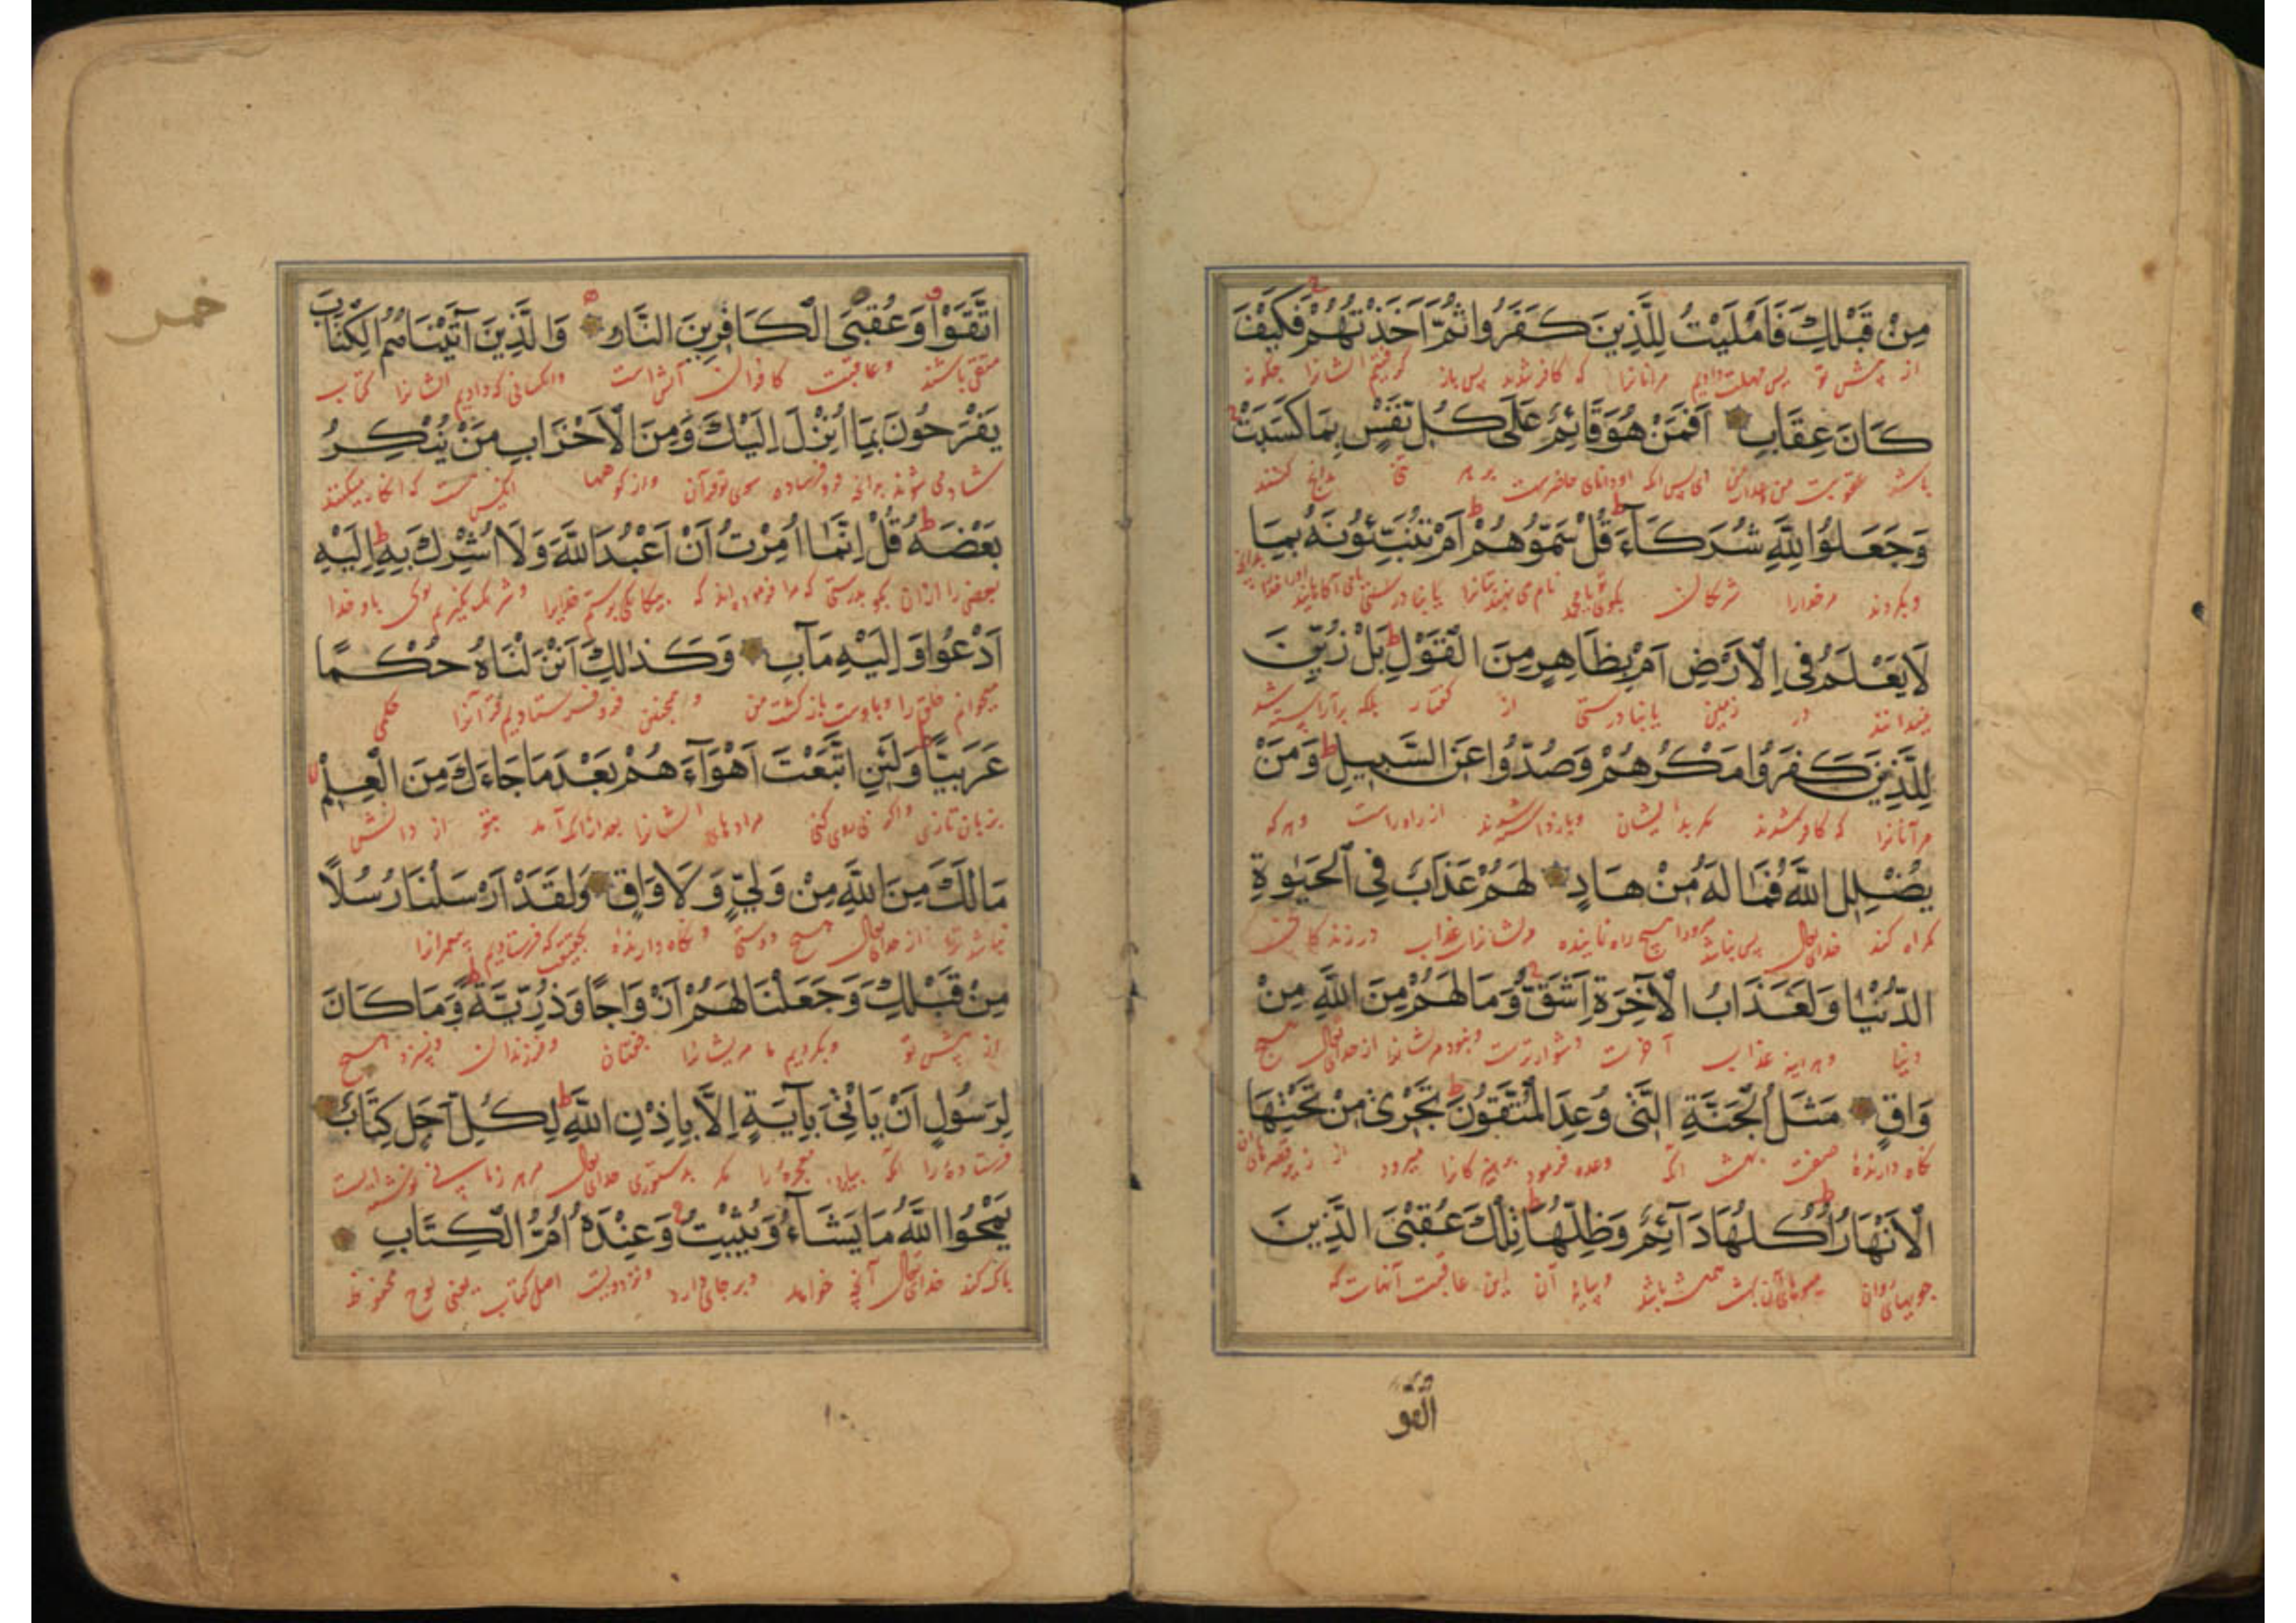 مِنْ قَبْلِكَ فَاَمْلَيْتُ لِلَّذِينَ كَفَرُوا ثُمَّ اَخَذْتُهُمْ فَكَيْفَ
از پیش تو پس مهلت دادیم مرآنانرا که کافر شدند پس باز گرفتیم ایشانرا چگونه
كَانَ عِقَابِ اَفَمَنْ هُوَ قَائِمٌ عَلَى كُلِّ نَفْسٍ بِمَا كَسَبَتْ
باشد عقوبت من
وَجَعَلُوا لِلَّهِ شُرَكَآءَ قُلْ سَمُّوهُمْ اَمْ تُنَبِّئُونَهُ بِمَا
وبکردند مرخدارا شریکان بگوی یا محمد
لَا يَعْلَمُ فِى الْاَرْضِ اَمْ بِظَاهِرٍ مِنَ الْقَوْلِ بَلْ زُيِّنَ
نمیدانند در زمین یا بنادرستی از گفتار بلکه برآراسته شد
لِلَّذِينَ كَفَرُوا مَكْرُهُمْ وَصُدُّوا عَنِ السَّبِيلِ وَمَنْ
مرآنانرا که کافر شدند مکر بد ایشان وبازداشته شدند از راه راست وهرکه
يُضْلِلِ اللَّهُ فَمَا لَهُ مِنْ هَادٍ لَهُمْ عَذَابٌ فِى الْحَيٰوةِ
کمراه کند خدای تعالی پس نباشد مرورا هیچ راه نماینده مرایشانرا عذاب در زندکانی
الدُّنْيَا وَلَعَذَابُ الْآخِرَةِ اَشَقُّ وَمَا لَهُمْ مِنَ اللَّهِ مِنْ
دنیا وهراینه عذاب آخرت دشوارترست ونبود مرایشانرا از خدای تعالی هیچ
وَاقٍ مَثَلُ الْجَنَّةِ الَّتِى وُعِدَ الْمُتَّقُونَ تَجْرِى مِنْ تَحْتِهَا
نگاه دارنده صفت بهشت آنکه وعده فرمود پرهیزکارانرا میرود از زیر قصرهای آن
الْاَنْهَارُ اُكُلُهَا دَآئِمٌ وَظِلُّهَا تِلْكَ عُقْبَى الَّذِينَ
جویهای روان میوهای آن بهشت همیشه باشد وسایه آن این عاقبت آنهاست که
اتقوا
اتَّقَوْا وَعُقْبَى الْكَافِرِينَ النَّارُ وَالَّذِينَ آتَيْنَاهُمُ الْكِتَابَ
متقی باشند وعاقبت کافران آتش است وآنکسانی که دادیم ایشانرا کتاب
يَفْرَحُونَ بِمَا اُنْزِلَ اِلَيْكَ وَمِنَ الْاَحْزَابِ مَنْ يُنْكِرُ
شاد می شوند بدانچه فرو فرستاده سوی تو قرآن واز کروهها آنکس است که انکار میکنند
بَعْضَهُ قُلْ اِنَّمَا اُمِرْتُ اَنْ اَعْبُدَ اللَّهَ وَلَا اُشْرِكَ بِهِ اِلَيْهِ
بعضی را ازان بکو بدرستی که مرا فرموده اند که
اَدْعُوا وَاِلَيْهِ مَآبِ وَكَذٰلِكَ اَنْزَلْنَاهُ حُكْمًا
میخوانم خلق را وباوست بازکشت من وهمچنین فرو فرستادیم قرآنرا حکمی
عَرَبِيًّا وَلَئِنِ اتَّبَعْتَ اَهْوَآءَهُمْ بَعْدَ مَا جَاءَكَ مِنَ الْعِلْمِ
بزبان تازی واکر پی روی کنی مرادهای ایشانرا بعد ازانکه آمد بتو از دانش
مَا لَكَ مِنَ اللَّهِ مِنْ وَلِىٍّ وَلَا وَاقٍ وَلَقَدْ اَرْسَلْنَا رُسُلًا
نباشد ترا از خدای تعالی هیچ دوستی ونگاه دارنده بحقیقت که فرستادیم پیغمبرانرا
مِنْ قَبْلِكَ وَجَعَلْنَا لَهُمْ اَزْوَاجًا وَذُرِّيَّةً وَمَا كَانَ
از پیش تو وبکردیم ما مریشانرا جفتان وفرزندان ونسزد هیچ
لِرَسُولٍ اَنْ يَاْتِىَ بِآيَةٍ اِلَّا بِاِذْنِ اللَّهِ لِكُلِّ اَجَلٍ كِتَابٌ
فرستاده را آنکه بیارد معجزه را مکر بدستوری خدای تعالی
يَمْحُوا اللَّهُ مَا يَشَاءُ وَيُثْبِتُ وَعِنْدَهُ اُمُّ الْكِتَابِ
پاک کند خدای تعالی آنچه خواهد وبر جای دارد ونزد ویست اصل کتاب یعنی لوح محفوظ